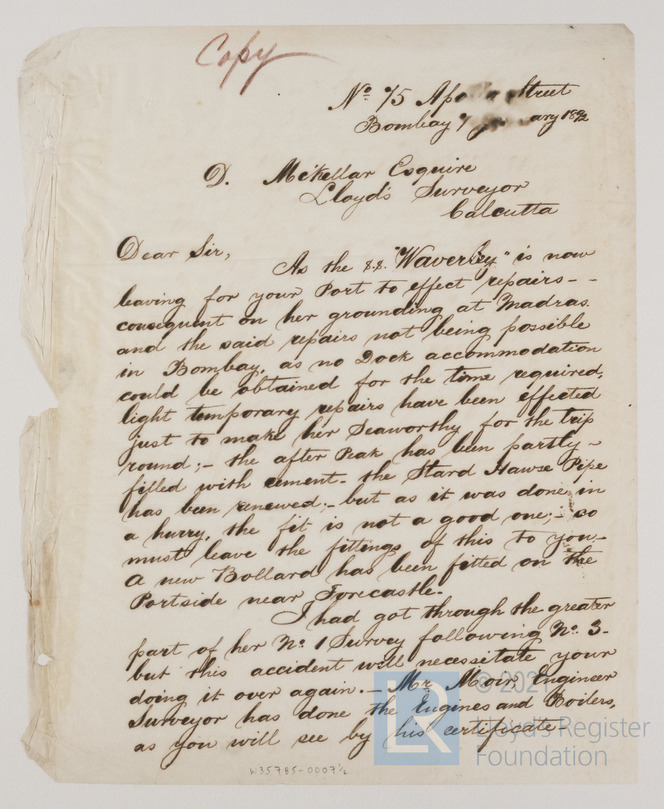 Copy
No. 75 Street
Bombay 7 1892
D. McKellar Esquire
Lloyd's Surveyor
Calcutta
Dear Sir,
As the s.s. "Waverley" is now
leaving for your Port to effect repairs - -
consequent on her grounding at Madras
and the said repairs not being possible
in Bombay, as no Dock accommodation
could be obtained for the time required,
light temporary repairs have been effected
just to make her Seaworthy for the trip
round; - the after Peak has been partly -
filled with cement - the Stard Hawse Pipe
has been renewed, - but as it was done in
a hurry, the fit is not a good one; - so
must leave the fittings of this to you. -
A new Bollard has been fitted on the
Portside near Forecastle. -
I had got through the greater
part of her No. 1 Survey following No. 3 -
but this accident will necessitate your
doing it over again. - Mr. Moir, Engineer
Surveyor has done the Engines and Boilers,
as you will see by his certificate
© 2021
LR
Lloyd's Register
Foundation
W35785-0007½